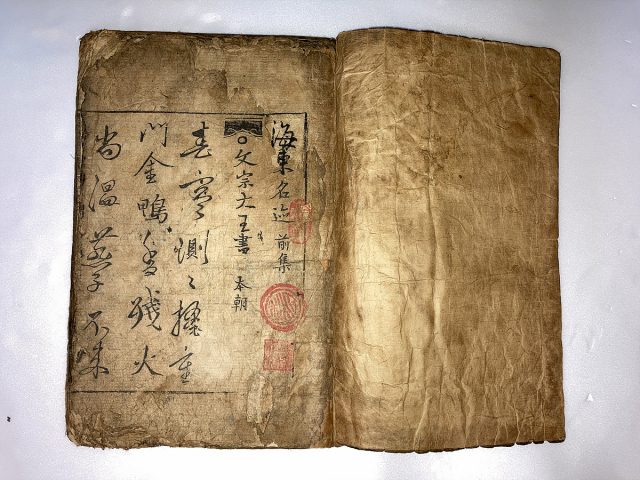 海東名迹 前集
○文宗大王書 本朝
春寒惻々掩重
門金鴨香殘火
尚温燕子不來